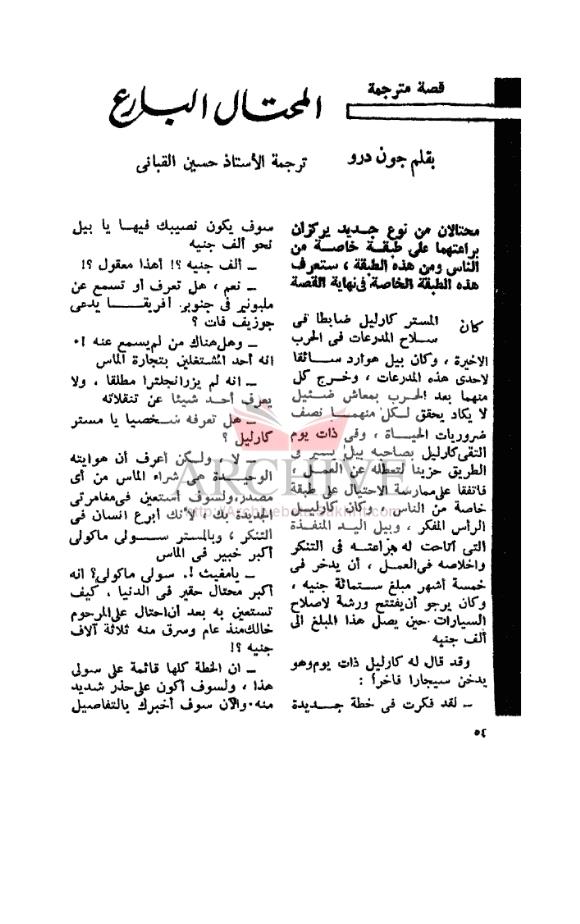 قصة مترجمة
المحتال البارع
بقلم جون درو
ترجمة الأستاذ حسين القبانى
محتالان من نوع جديد يركزان
براعتهما على طبقة خاصة من
الناس ومن هذه الطبقة ، ستعرف
هذه الطبقة الخاصة فى نهاية القصة
كان المستر كارليل ضابطا فى
سلاح المدرعات فى الحرب
الاخيرة ، وكان بيل هوارد سائقا
لاحدى هذه المدرعات ، وخرج كل
منهما بعد الحرب بمعاش ضئيل
لا يكاد يحقق لكل منهما نصف
ضروريات الحياة ، وفى ذات يوم
التقى كارليل بصاحبه بيل يسير فى
الطريق حزينا لتعطله عن العمل ،
فاتفقا على ممارسة الاحتيال على طبقة
خاصة من الناس ، وكان كارليل
الرأس المفكر ، وبيل اليد المنفذة
التى أتاحت له براعته فى التنكر
واخلاصه فى العمل ، أن يدخر فى
خمسة أشهر مبلغ ستمائة جنيه ،
وكان يرجو أن يفتتح ورشة لاصلاح
السيارات حين يصل هذا المبلغ الى
ألف جنيه
وقد قال له كارليل ذات يوم وهو
يدخن سيجارا فاخرا :
ــ لقد فكرت فى خطة جديدة
سوف يكون نصيبك فيها يا بيل
نحو ألف جنيه
ــ ألف جنيه ؟! أهذا معقول ؟!
ــ نعم ، هل تعرف أو تسمع عن
مليونير فى جنوبى أفريقا يدعى
جوزيف فات ؟
ــ وهل هناك من لم يسمع عنه !٠
انه أحد المشتغلين بتجارة الماس
ــ انه لم يزر انجلترا مطلقا ، ولا
يعرف أحد شيئا عن تنقلاته
ــ هل تعرفه شخصيا يا مستر
كارليل ؟
ــ لا ، ولكن أعرف أن هوايته
الوحيدة هى شراء الماس من أى
مصدر ولسوف أستعين فى مغامرتى
الجديدة بك ، لأنك أبرع انسان فى
التنكر ، وبالمستر سولى ماكولى
أكبر خبير فى الماس
ــ يا مغيث !٠ سولى ماكولى؟ انه
أكبر محتال حقير فى الدنيا ، كيف
تستعين به بعد أن احتال على المرحوم
خالك منذ عام وسرق منه ثلاثة آلاف
جنيه ؟!
ــ ان الخطة كلها قائمة على سولى
هذا ، ولسوف أكون على حذر شديد
منه٠ والآن سوف أخبرك بالتفاصيل
٥٤
ARCHIVE